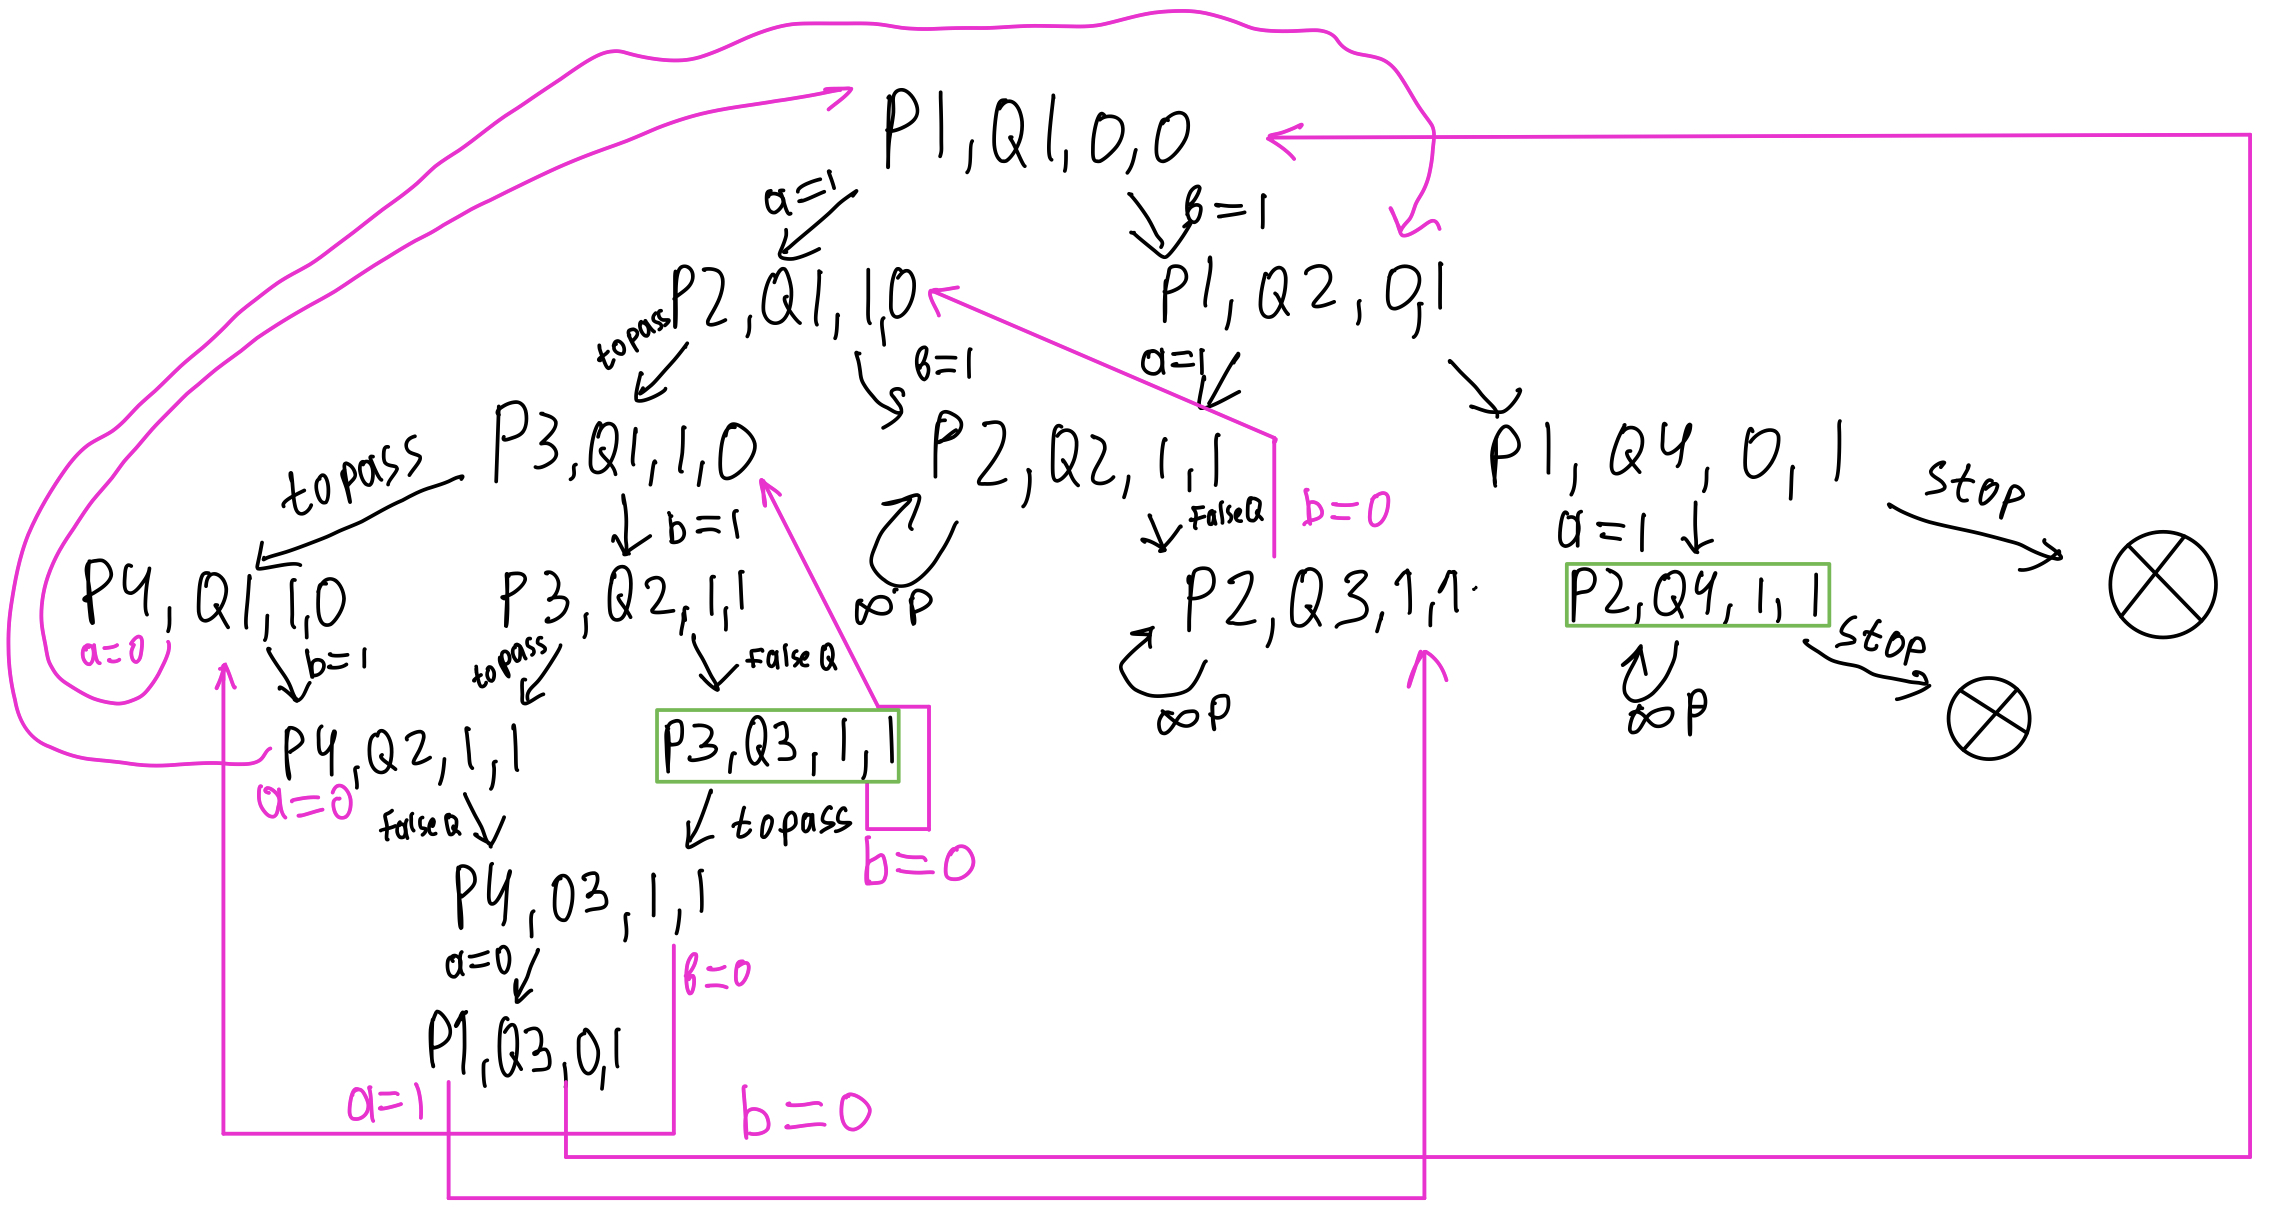 P1, Q1, 0, 0
a=1
B=1
P2, Q1, 1, 0
P1, Q2, 0, 1
to pass
B=1
a=1
P3, Q1, 1, 0
P2, Q2, 1, 1
P1, Q4, 0, 1
to pass
b=1
False Q
b=0
a=1
stop
P4, Q1, 1, 0
a=0
b=1
P3, Q2, 1, 1
∞ P
P2, Q3, 1, 1
P2, Q4, 1, 1
stop
to pass
False Q
∞ P
∞ P
P4, Q2, 1, 1
a=0
P3, Q3, 1, 1
False Q
to pass
b=0
P4, 03, 1, 1
a=0
B=0
P1, Q3, 0, 1
a=1
b=0